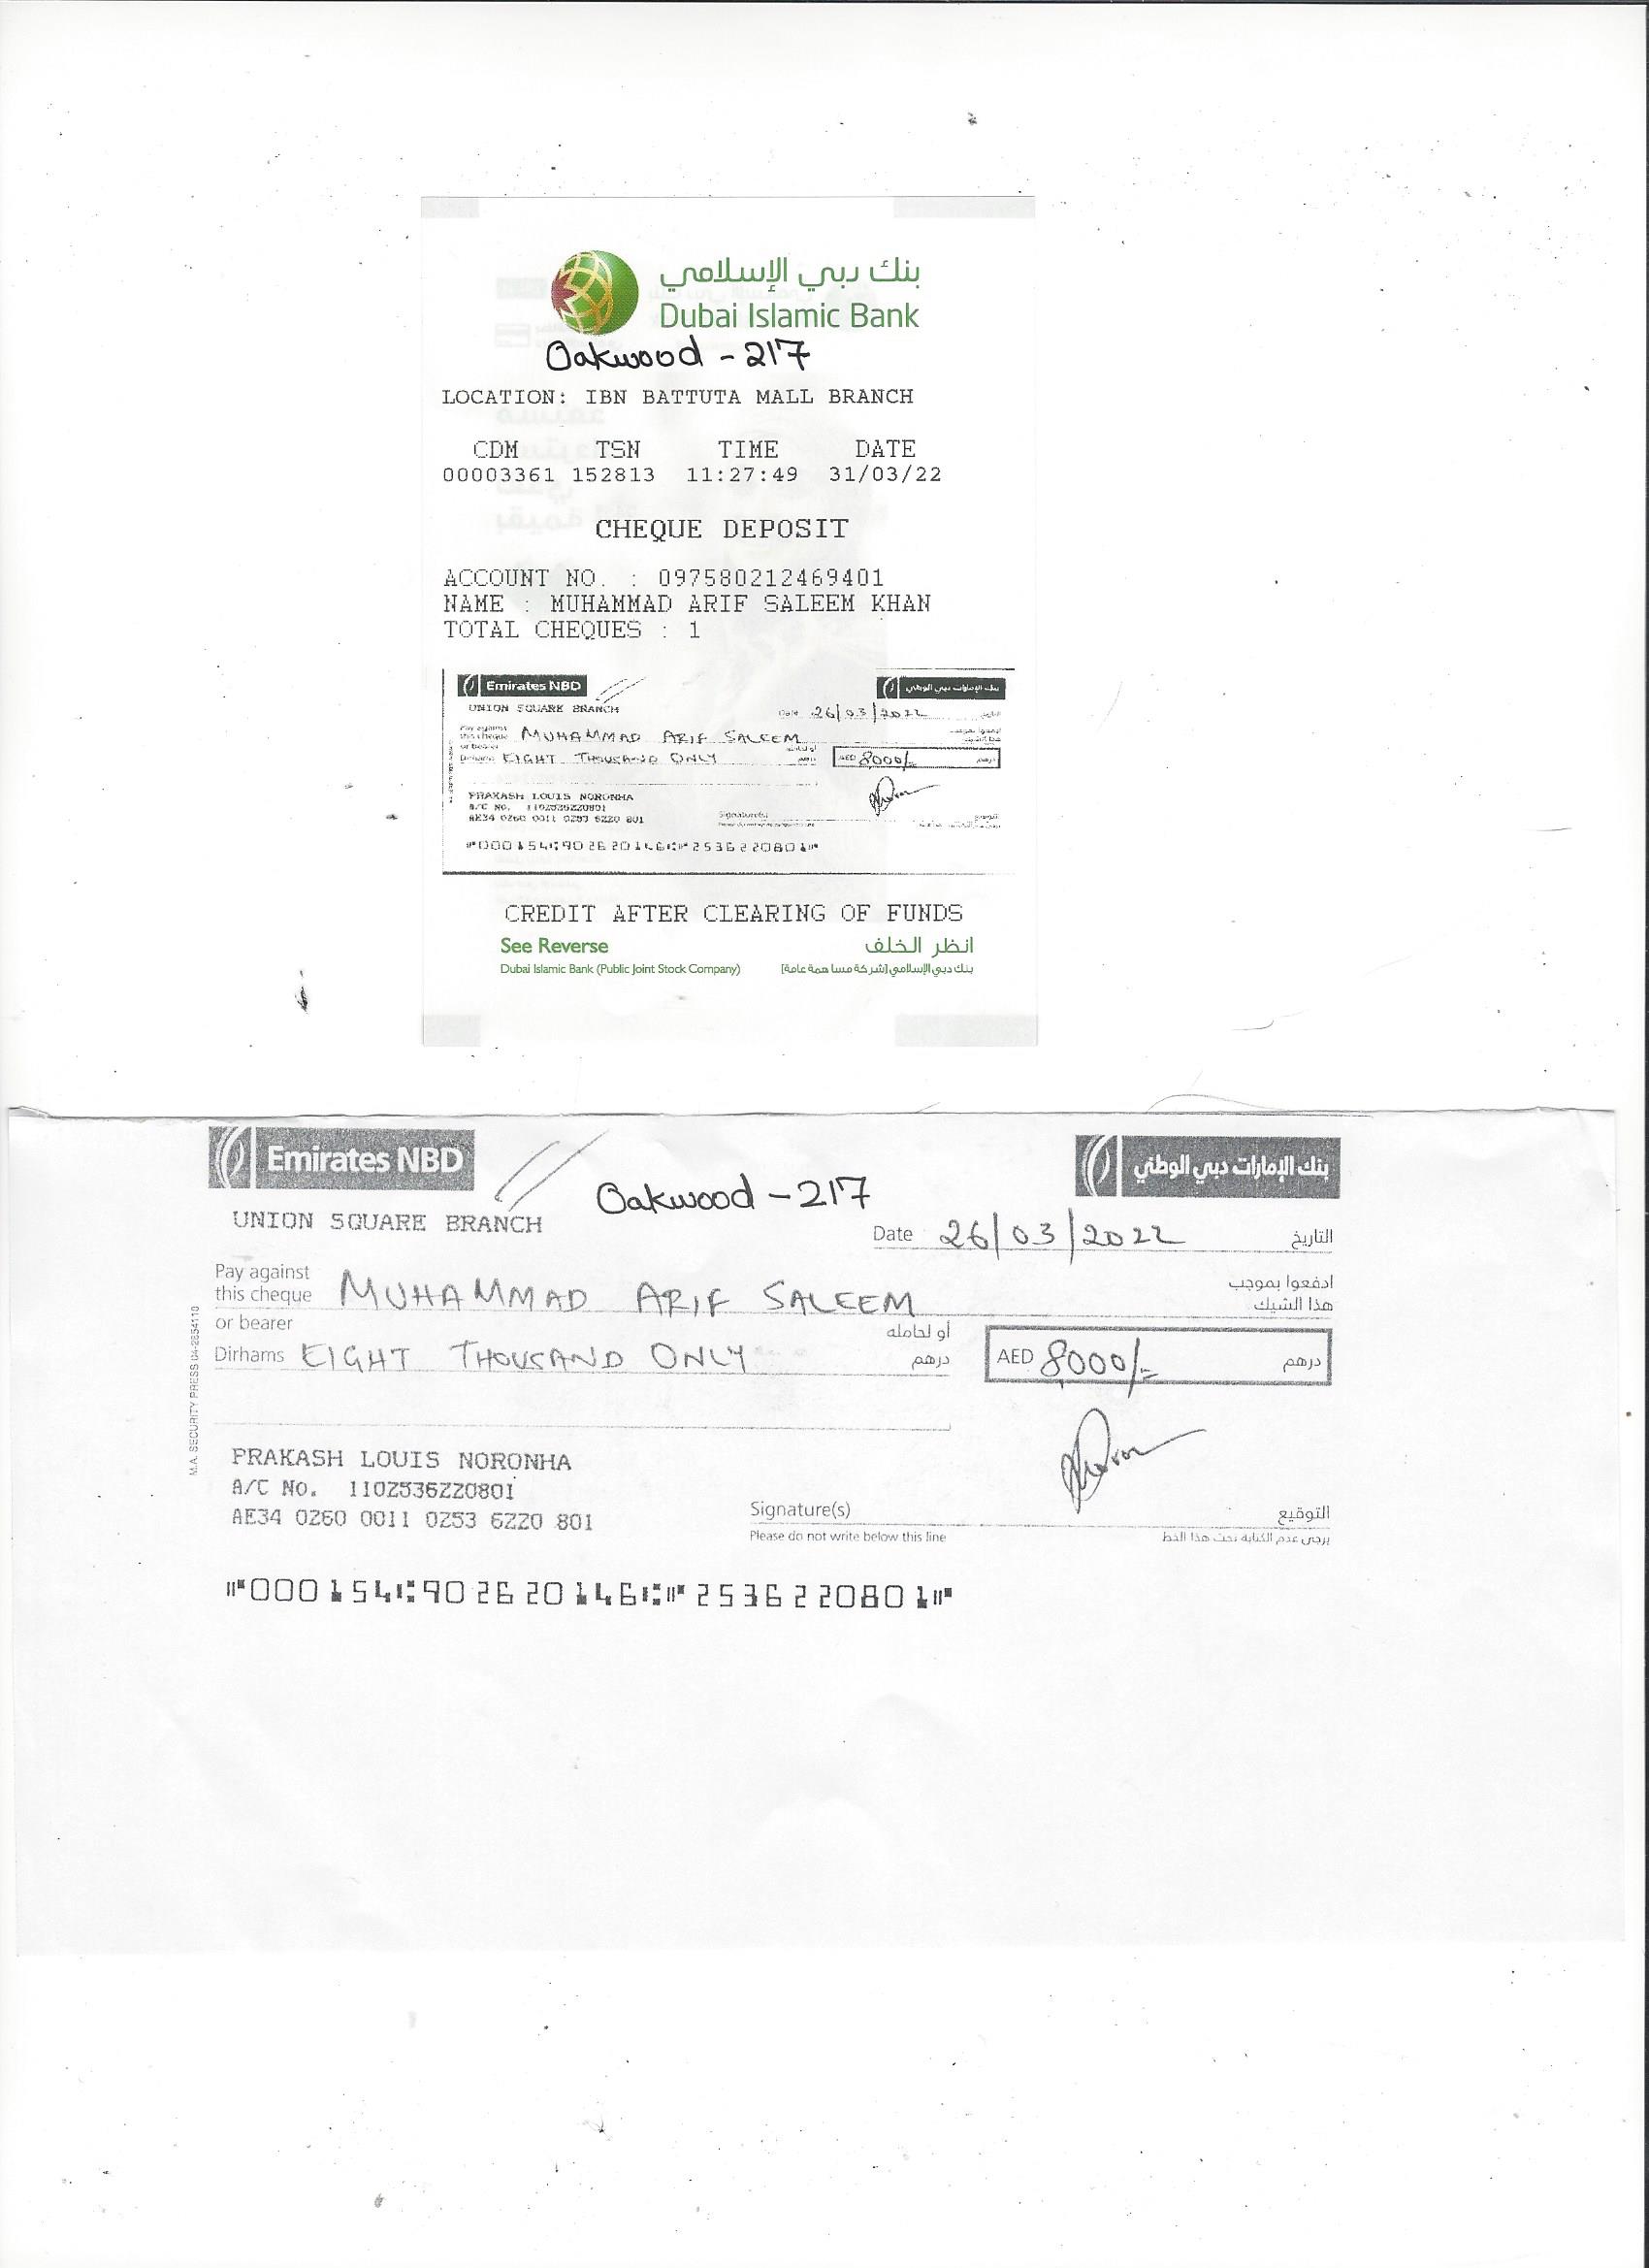 بنك دبي الإسلامي
Dubai Islamic Bank
Oakwood - 217
LOCATION: IBN BATTUTA MALL BRANCH
CDM TSN TIME DATE
00003361 152813 11:27:49 31/03/22
CHEQUE DEPOSIT
ACCOUNT NO. : 097580212469401
NAME : MUHAMMAD ARIF SALEEM KHAN
TOTAL CHEQUES : 1
Emirates NBD بنك الإمارات دبي الوطني
UNION SQUARE BRANCH
Date 26/03/2022 التاريخ
Pay against this cheque or bearer MUHAMMAD ARIF SALEEM
Dirhams EIGHT THOUSAND ONLY درهم AED 8000/- درهم
PRAKASH LOUIS NORONHA
A/C NO. 1102536220801
AE34 0260 0011 0253 6220 801
Signature(s) التوقيع
⑈000154⑆902620146⑆⑈2536220801⑈
CREDIT AFTER CLEARING OF FUNDS
See Reverse انظر الخلف
Dubai Islamic Bank (Public Joint Stock Company) بنك دبي الإسلامي (شركة مساهمة عامة)
Emirates NBD بنك الإمارات دبي الوطني
Oakwood - 217
UNION SQUARE BRANCH
Date 26/03/2022 التاريخ
Pay against ادفعوا بموجب
this cheque MUHAMMAD ARIF SALEEM هذا الشيك
or bearer أو لحامله
Dirhams EIGHT THOUSAND ONLY درهم AED 8000/- درهم
M.A. SECURITY PRESS 04-2854110
PRAKASH LOUIS NORONHA
A/C No. 1102536220801
AE34 0260 0011 0253 6220 801
Signature(s) التوقيع
Please do not write below this line يرجى عدم الكتابة تحت هذا الخط
⑈000154⑆902620146⑆⑈2536220801⑈